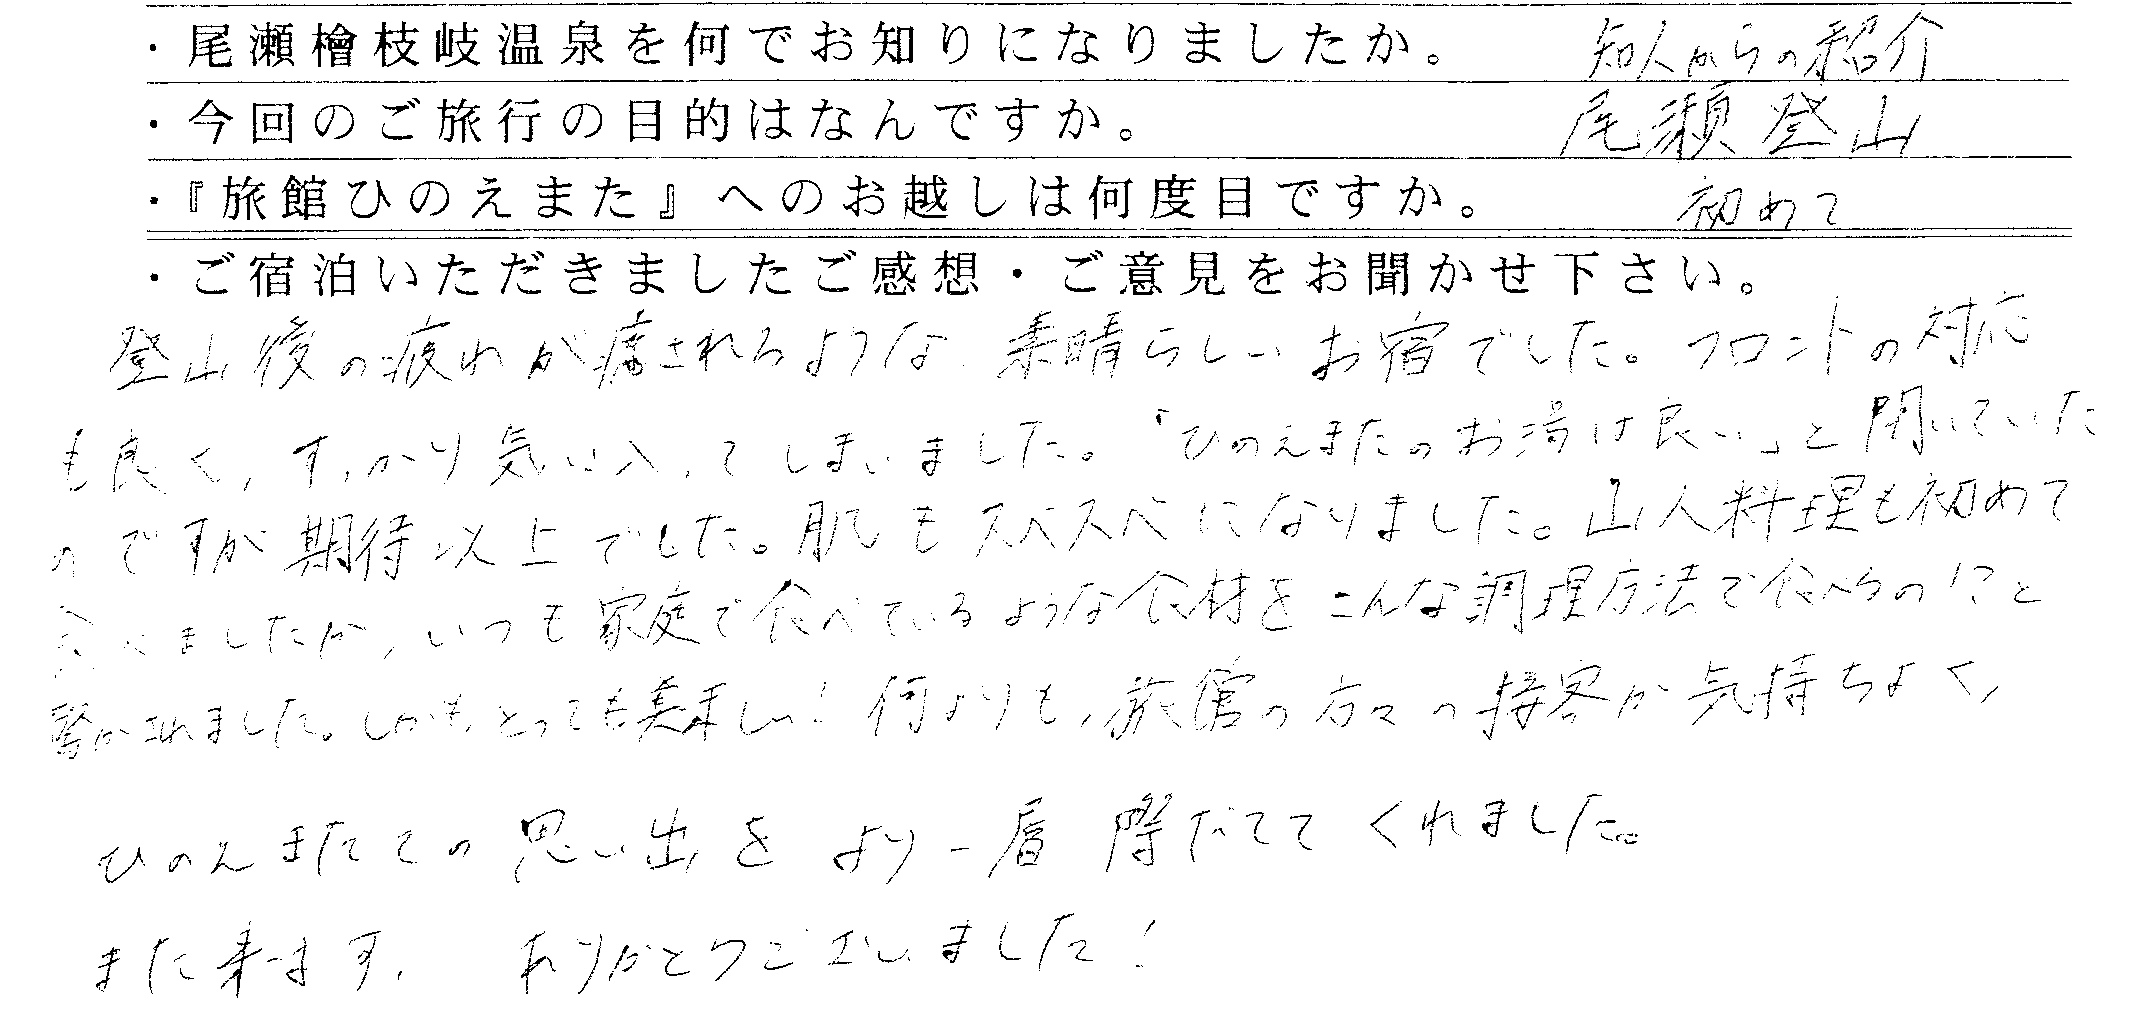 ・尾瀬檜枝岐温泉を何でお知りになりましたか。 知人からの紹介
・今回のご旅行の目的はなんですか。 尾瀬登山
・『旅館ひのえまた』へのお越しは何度目ですか。 初めて
・ご宿泊いただきましたご感想・ご意見をお聞かせ下さい。
登山後の疲れが癒されるような、素晴らしいお宿でした。フロントの対応
も良く、すっかり気に入ってしまいました。「ひのえまたのお湯は良い」と聞いていた
のですが期待以上でした。肌もスベスベになりました。山人料理も初めて
食べましたが、いつも家庭で食べているような食材をこんな調理方法で食べるの!?と
驚かされました。しかも、とっても美味しい!何よりも、旅館の方々の接客が気持ちよく、
ひのえまたでの思い出をより一層際だててくれました。
また来ます。 ありがとうございました!